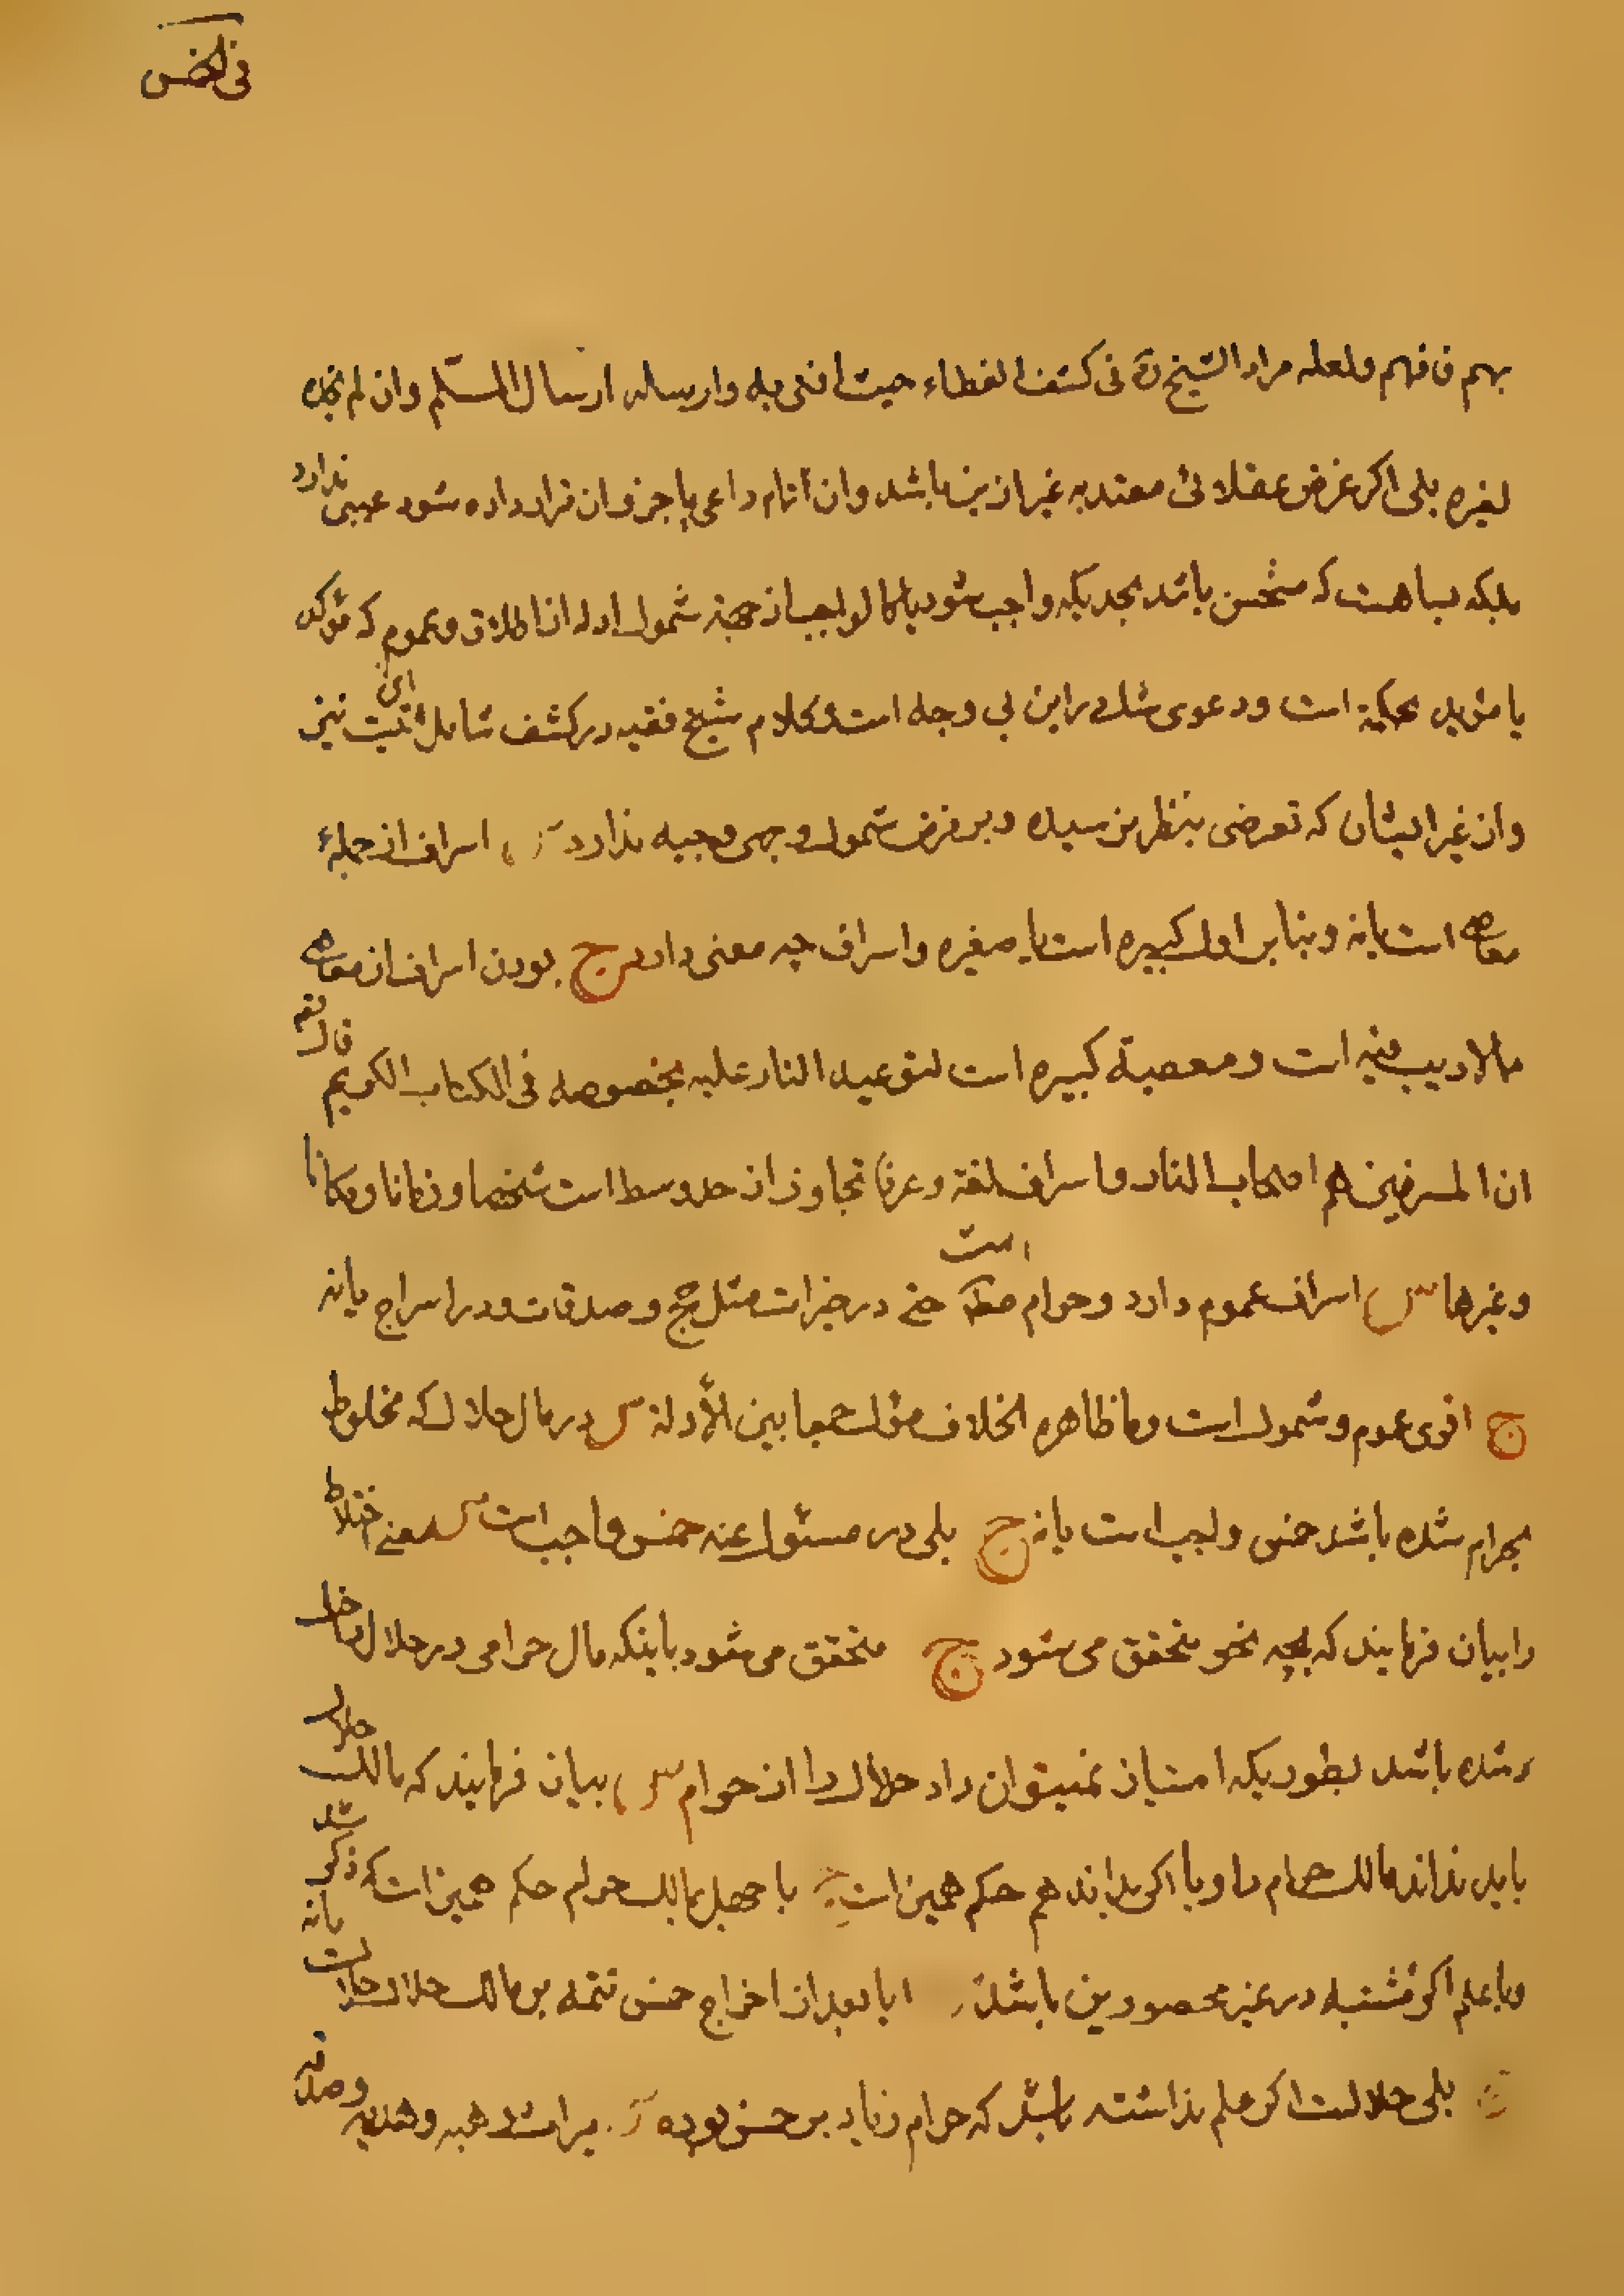 فی الخمس
بهم فافهم ولعله مراد الشیخ ره فی کشف الغطاء حیث افتی به وارسله ارسال المسلم وان لم نجده
لغیره بلی اکر غرض عقلائی معتد به غیر از زینة باشد وان اتمام داعی یا جزو ان قرار داده شود عیبی ندارد
بلکه بسا هست که مستحسن باشد بحدیکه واجب شود یا کالواجب از جهة شمول ادله از اطلاق وعموم که مؤکد
یا مؤید بحکمة است ودعوی شک در این بی وجه است وکلام شیخ فقیه در کشف شامل این قسمت نیز
وان غیر ایشان که تعرضی بنظر نرسیده وبر فرض شمول وجهی وجیه ندارد س اسراف از جملهٔ
معاصی است یا نه وبنا بر اول کبیره است یا صغیره واسراف چه معنی دارد ج بودن اسراف از معاصی
مالا ریب فیه است ومعصیة کبیره است لتوعید النار علیه بخصوصه فی الکتاب الکریم قال تعم
ان المسرفین هم اصحاب النار واسراف لغة وعرفا تجاوز از حد وسط است شخصا وزمانا ومکانا
وغیرها س اسراف عموم دارد وحرام است حتی در خیرات مثل حج وصدقات ودر اسراج یا نه
ج اقوی عموم وشمول است وما ظاهره الخلاف مؤل جمعا بین الأدلة س در مال حلال که مخلوط
بحرام شده باشد خمس واجب است یا نه ج بلی در مسئول عنه خمس واجب است س معنی اختلاط
را بیان فرمایند که بچه نحو متحقق می شود ج متحقق می شود باینکه مال حرامی در حلال داخل
شده باشد بطوریکه امتیاز نمیتوان داد حلال را از حرام س بیان فرمایند که مالک حلال
باید نداند مالک حرام را ویا اکر بداند هم حکم همین است ج با جهل بمالک حرام حکم همین است که ذکر شد
وبا علم اکر مشتبه در غیر محصورین باشد س ایا بعد از اخراج خمس تتمه بر مالک حلال حلال است یا نه
ج بلی حلالست اکر علم نداشته باشد که حرام زیاد بر خمس بوده س میراث وهبه وهدیه وصدقه